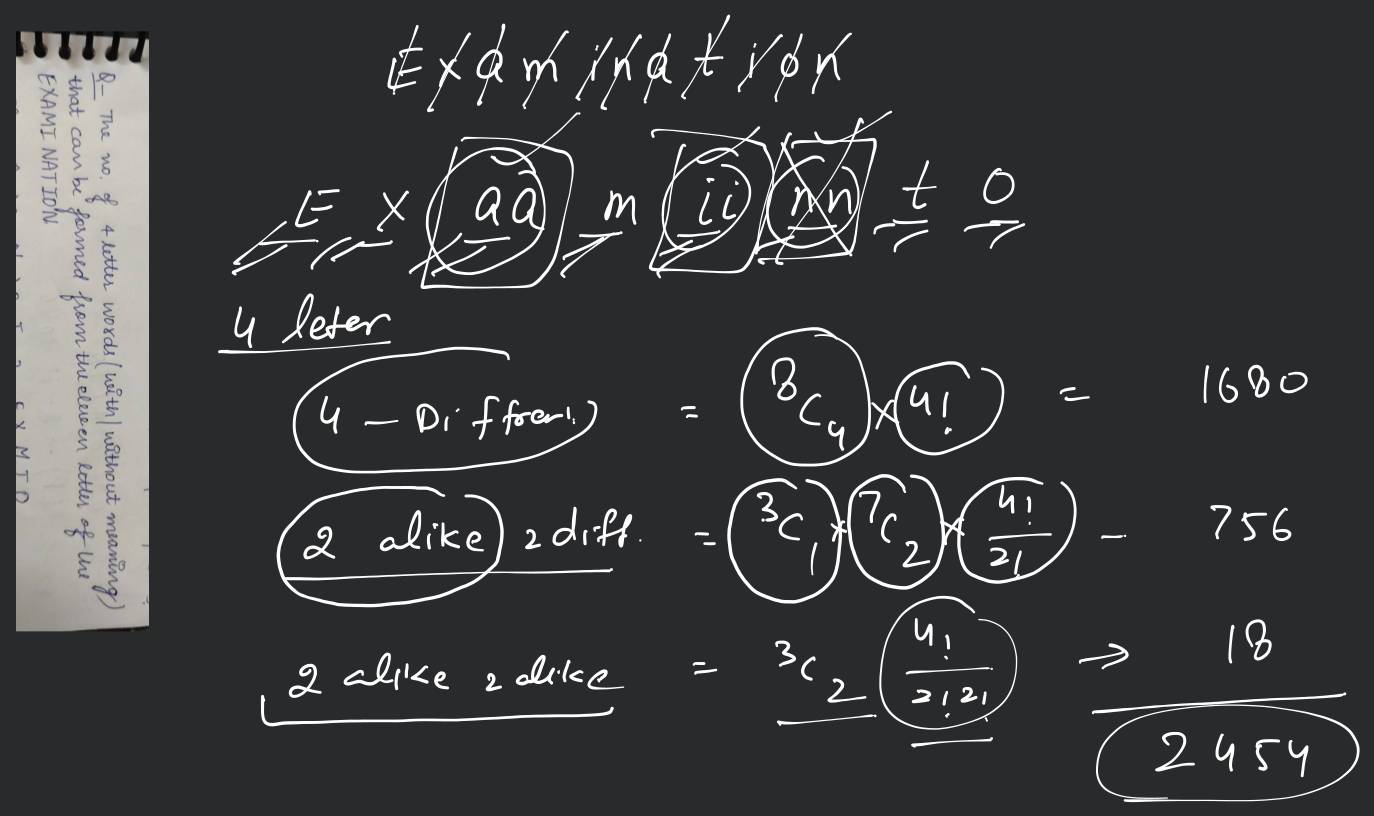 Q- The no. of 4 letter words (with/without meaning)
that can be formed from the eleven letter of the
EXAMINATION
Examination
E x aa m ii nn t o
4 leter
4 - Diffrent = ⁸C₄ × 4! = 1680
2 alike 2 diff. = ³C₁ × ⁷C₂ × 4!/2! - 756
2 alike 2 alike = ³C₂ 4!/2!2! → 18
2454